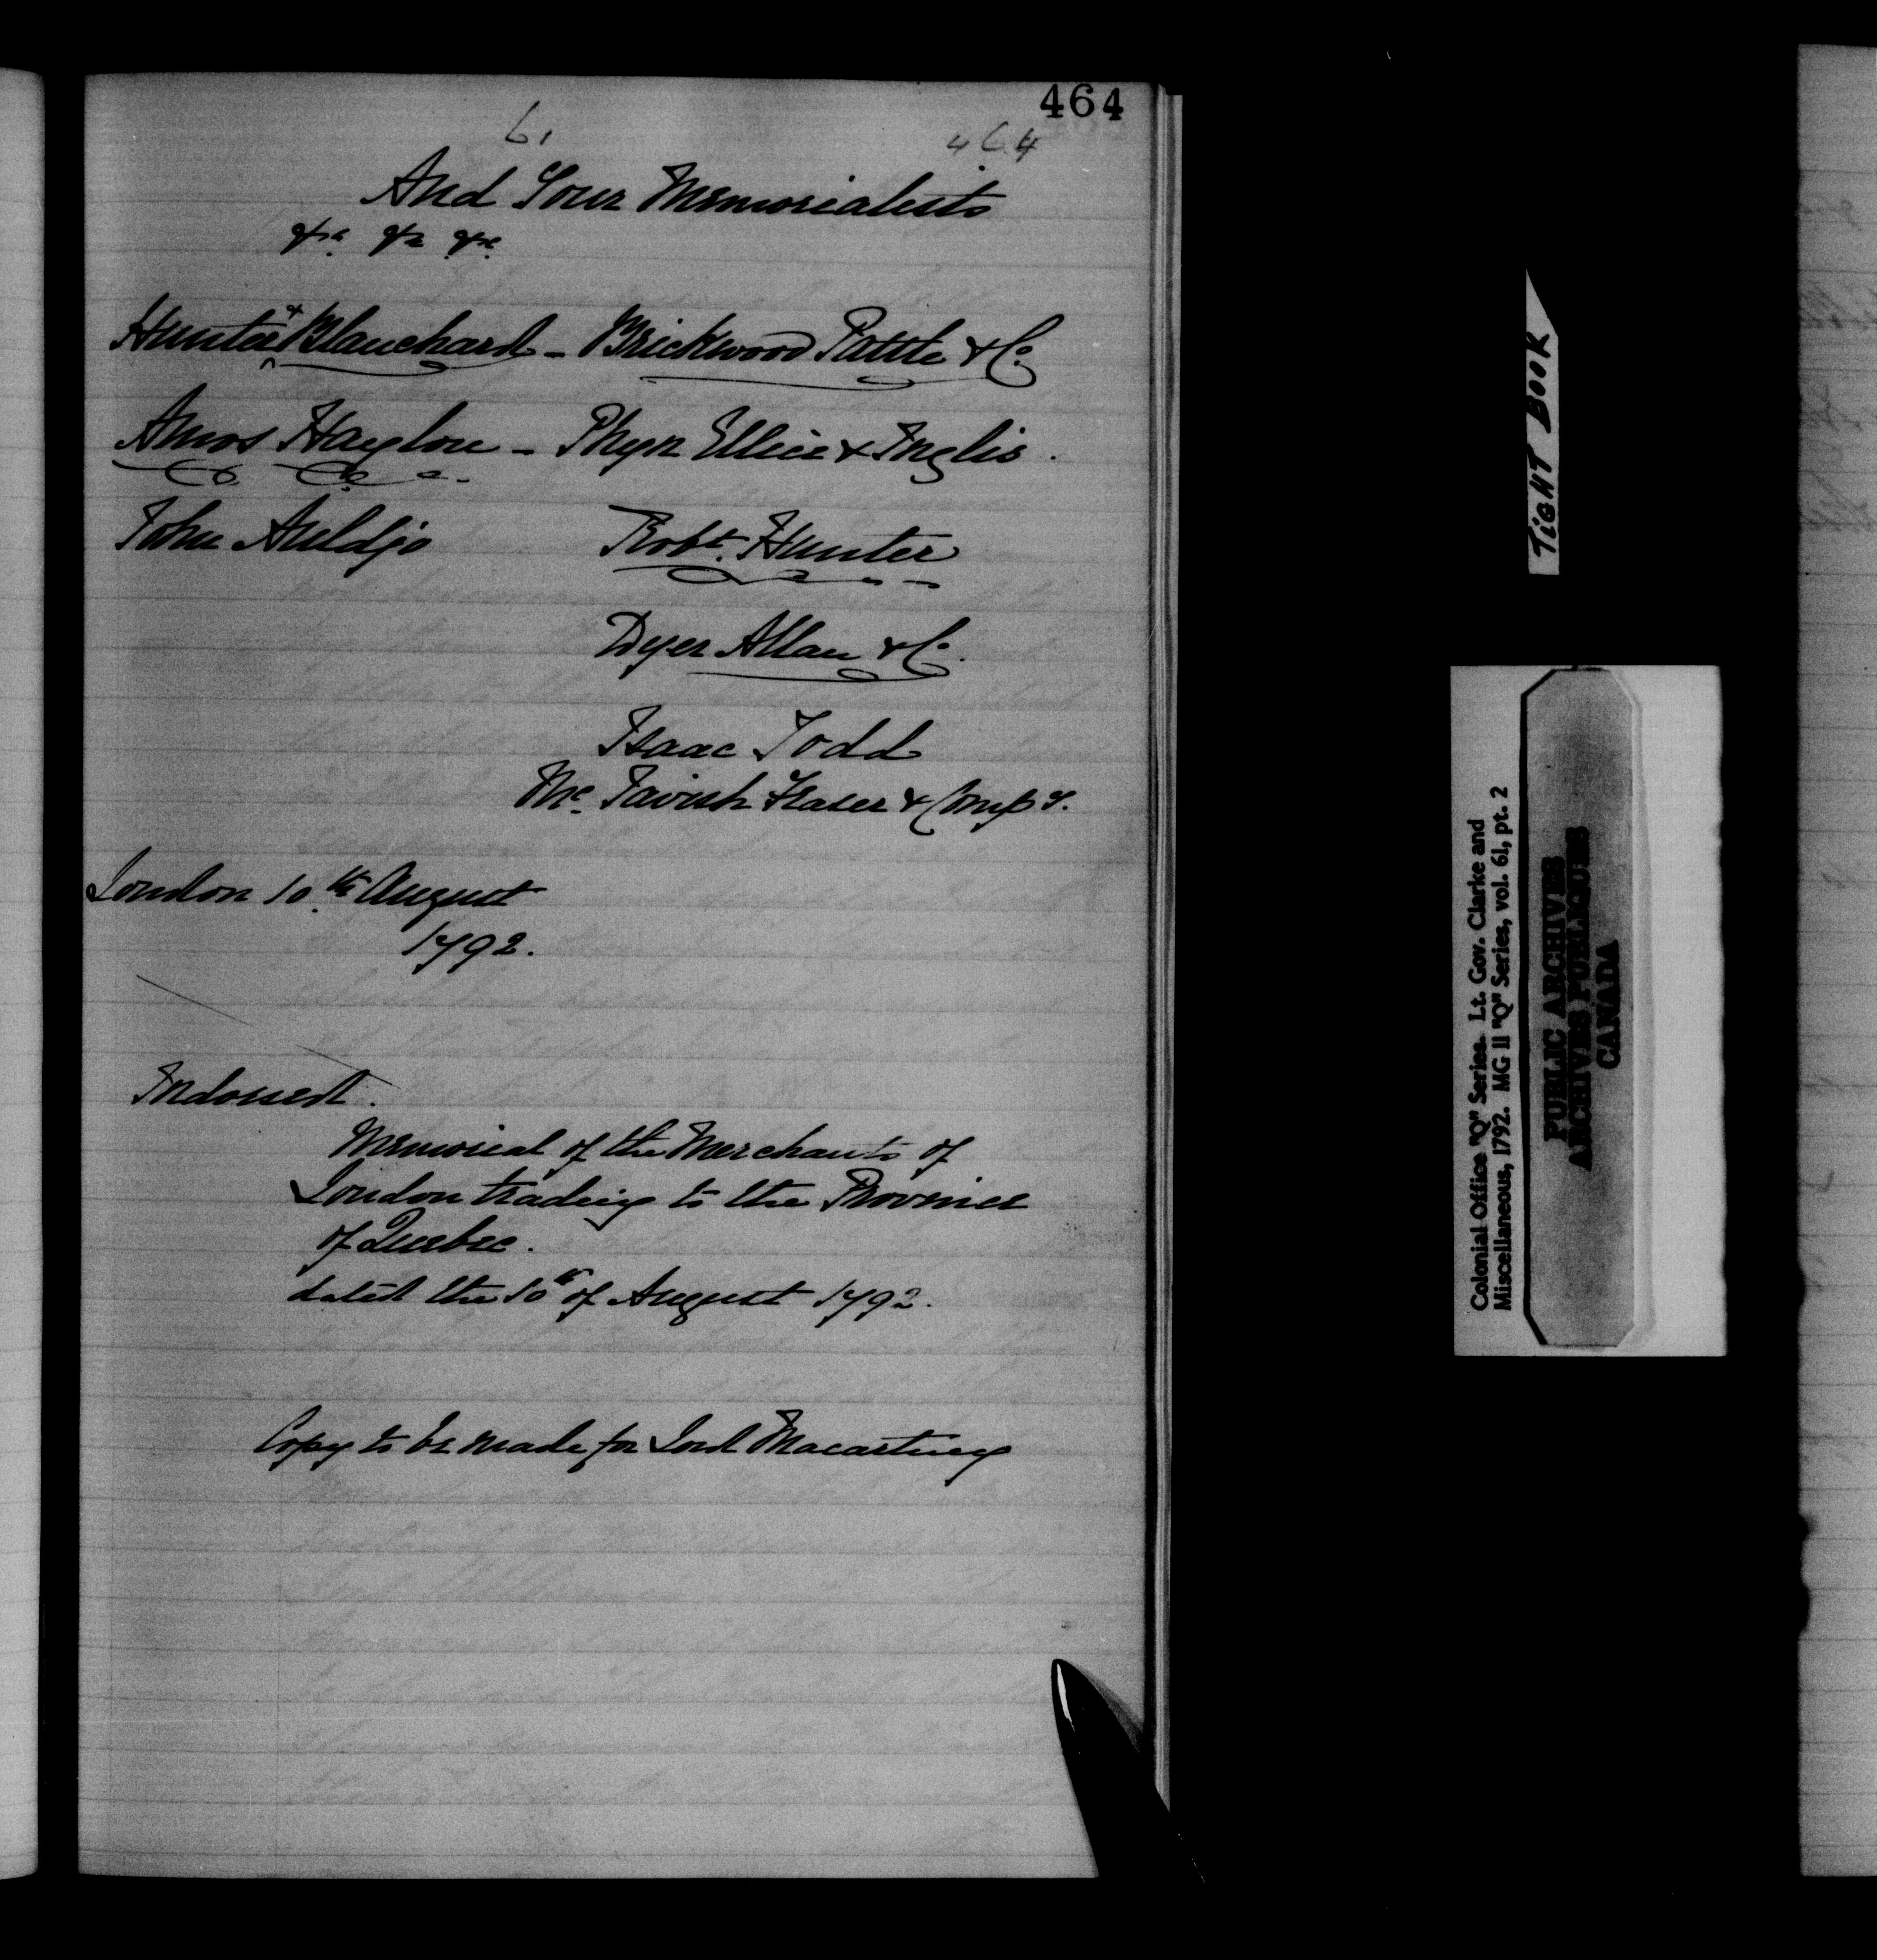 464
61
464
And Your Memorialists
&c. &c. &c.
Hunter & Blanchard - Brickwood Pattle & Co.
Amos Hayton - Phyn Ellice & Inglis.
John Auldjo Robt. Hunter
Dyer Allan & Co.
Isaac Todd
Mc. Tavish Fraser & Compy.
London 10.th August
1792.
Indorsed.
Memorial of the Merchants of
London trading to the Province
of Quebec.
dated the 10th of August 1792.
Copy to be made for Lord Macartney
TIGHT BOOK
Colonial Office "Q" Series. Lt. Gov. Clarke and
Miscellaneous, 1792. MG 11 "Q" Series, vol. 61, pt. 2
PUBLIC ARCHIVES
ARCHIVES PUBLIQUES
CANADA